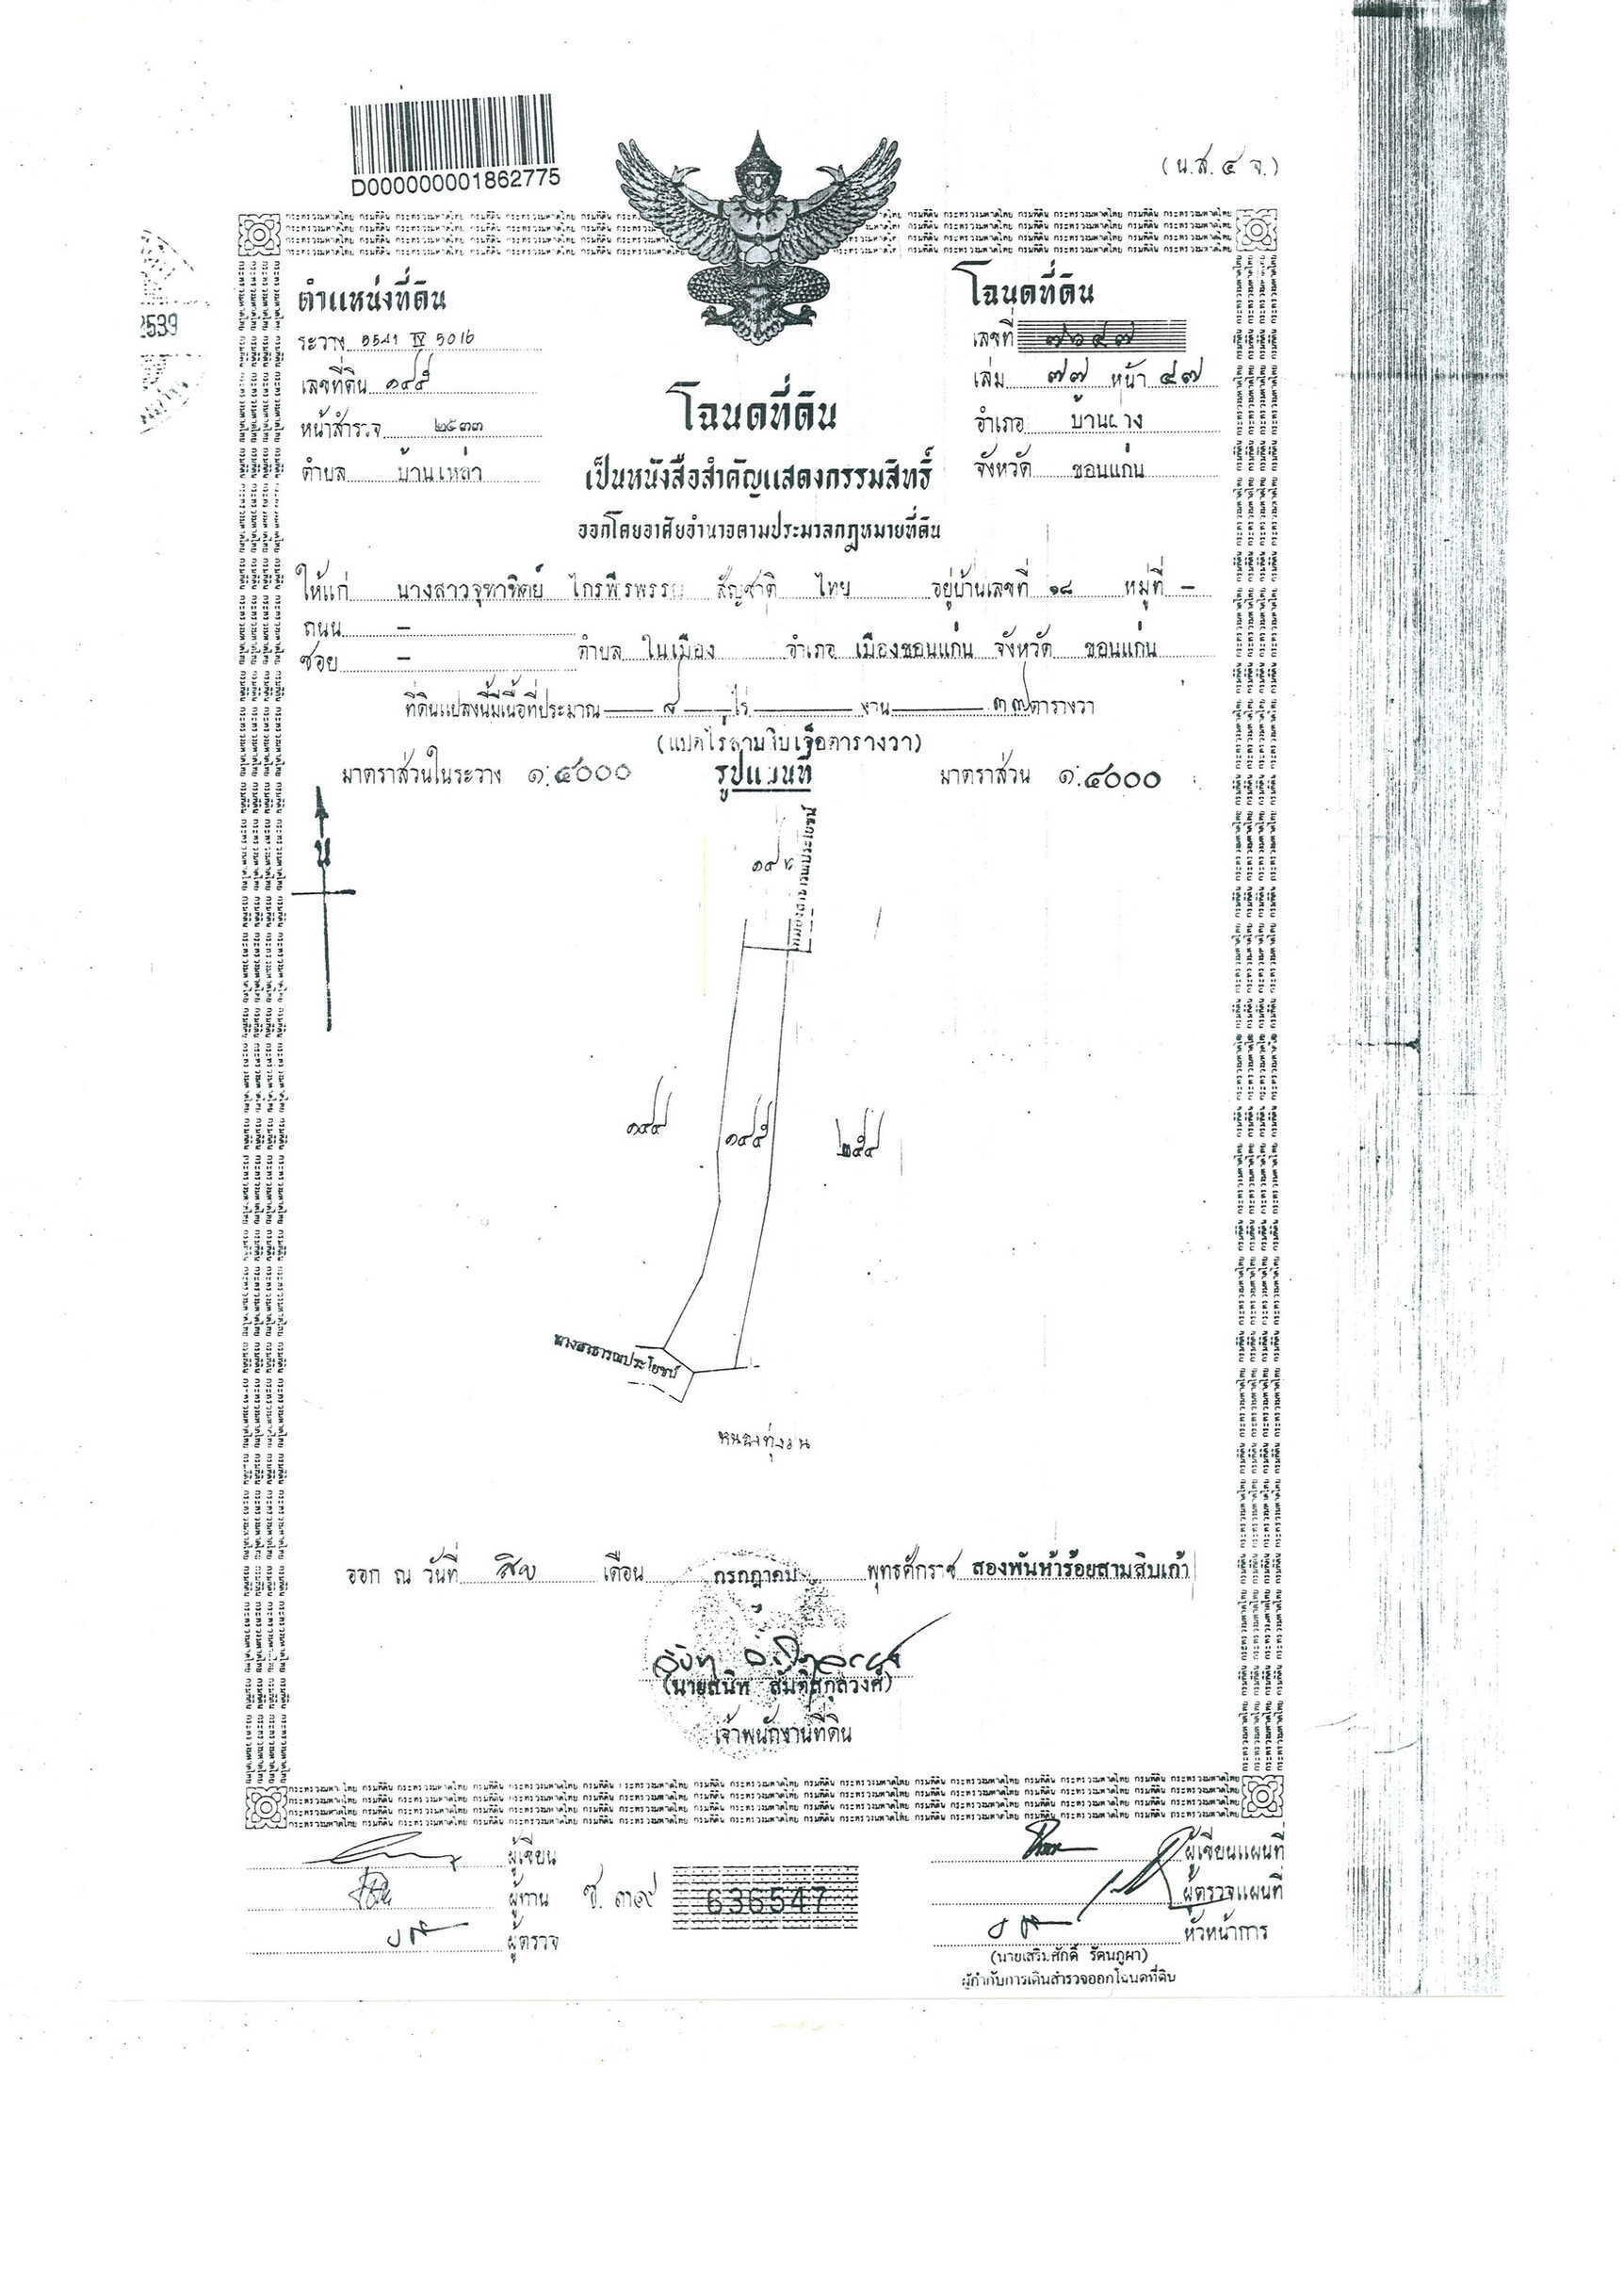 D000000001862775
(น.ส.๔ จ.)
ตำแหน่งที่ดิน
ระวาง 5541 IV 5016
เลขที่ดิน ๑๔๕
หน้าสำรวจ ๒๕๓๓
ตำบล บ้านเหล่า
โฉนดที่ดิน
เลขที่
เล่ม ๗๗ หน้า ๔๗
อำเภอ บ้านฝาง
จังหวัด ขอนแก่น
2539
โฉนดที่ดิน
เป็นหนังสือสำคัญแสดงกรรมสิทธิ์
ออกโดยอาศัยอำนาจตามประมวลกฎหมายที่ดิน
ให้แก่ นางสาวจุฑาทิตย์ ไกรพีรพรรณ สัญชาติ ไทย อยู่บ้านเลขที่ ๑๘ หมู่ที่ -
ถนน -
ซอย - ตำบล ในเมือง อำเภอ เมืองขอนแก่น จังหวัด ขอนแก่น
ที่ดินแปลงนี้มีเนื้อที่ประมาณ ๘ ไร่ งาน ๓๗ ตารางวา
(แปดไร่สามสิบเจ็ดตารางวา)
มาตราส่วนในระวาง ๑:๔๐๐๐ รูปแผนที่ มาตราส่วน ๑:๔๐๐๐
น
ทางสาธารณประโยชน์
๑๔๔ ๑๔๕ ๒๕๔
ทางสาธารณประโยชน์
ออก ณ วันที่ สิบ เดือน กรกฎาคม พุทธศักราช สองพันห้าร้อยสามสิบเก้า
(นายสนิท สันติสกุลวงศ์)
เจ้าพนักงานที่ดิน
ผู้เขียน
ผู้ทาน
ผู้ตรวจ
ซ. ๓๑๙ 636547
ผู้เขียนแผนที่
ผู้ตรวจแผนที่
หัวหน้าการ
(นายเสริมศักดิ์ รัตนภูผา)
ผู้กำกับการเดินสำรวจออกโฉนดที่ดิน